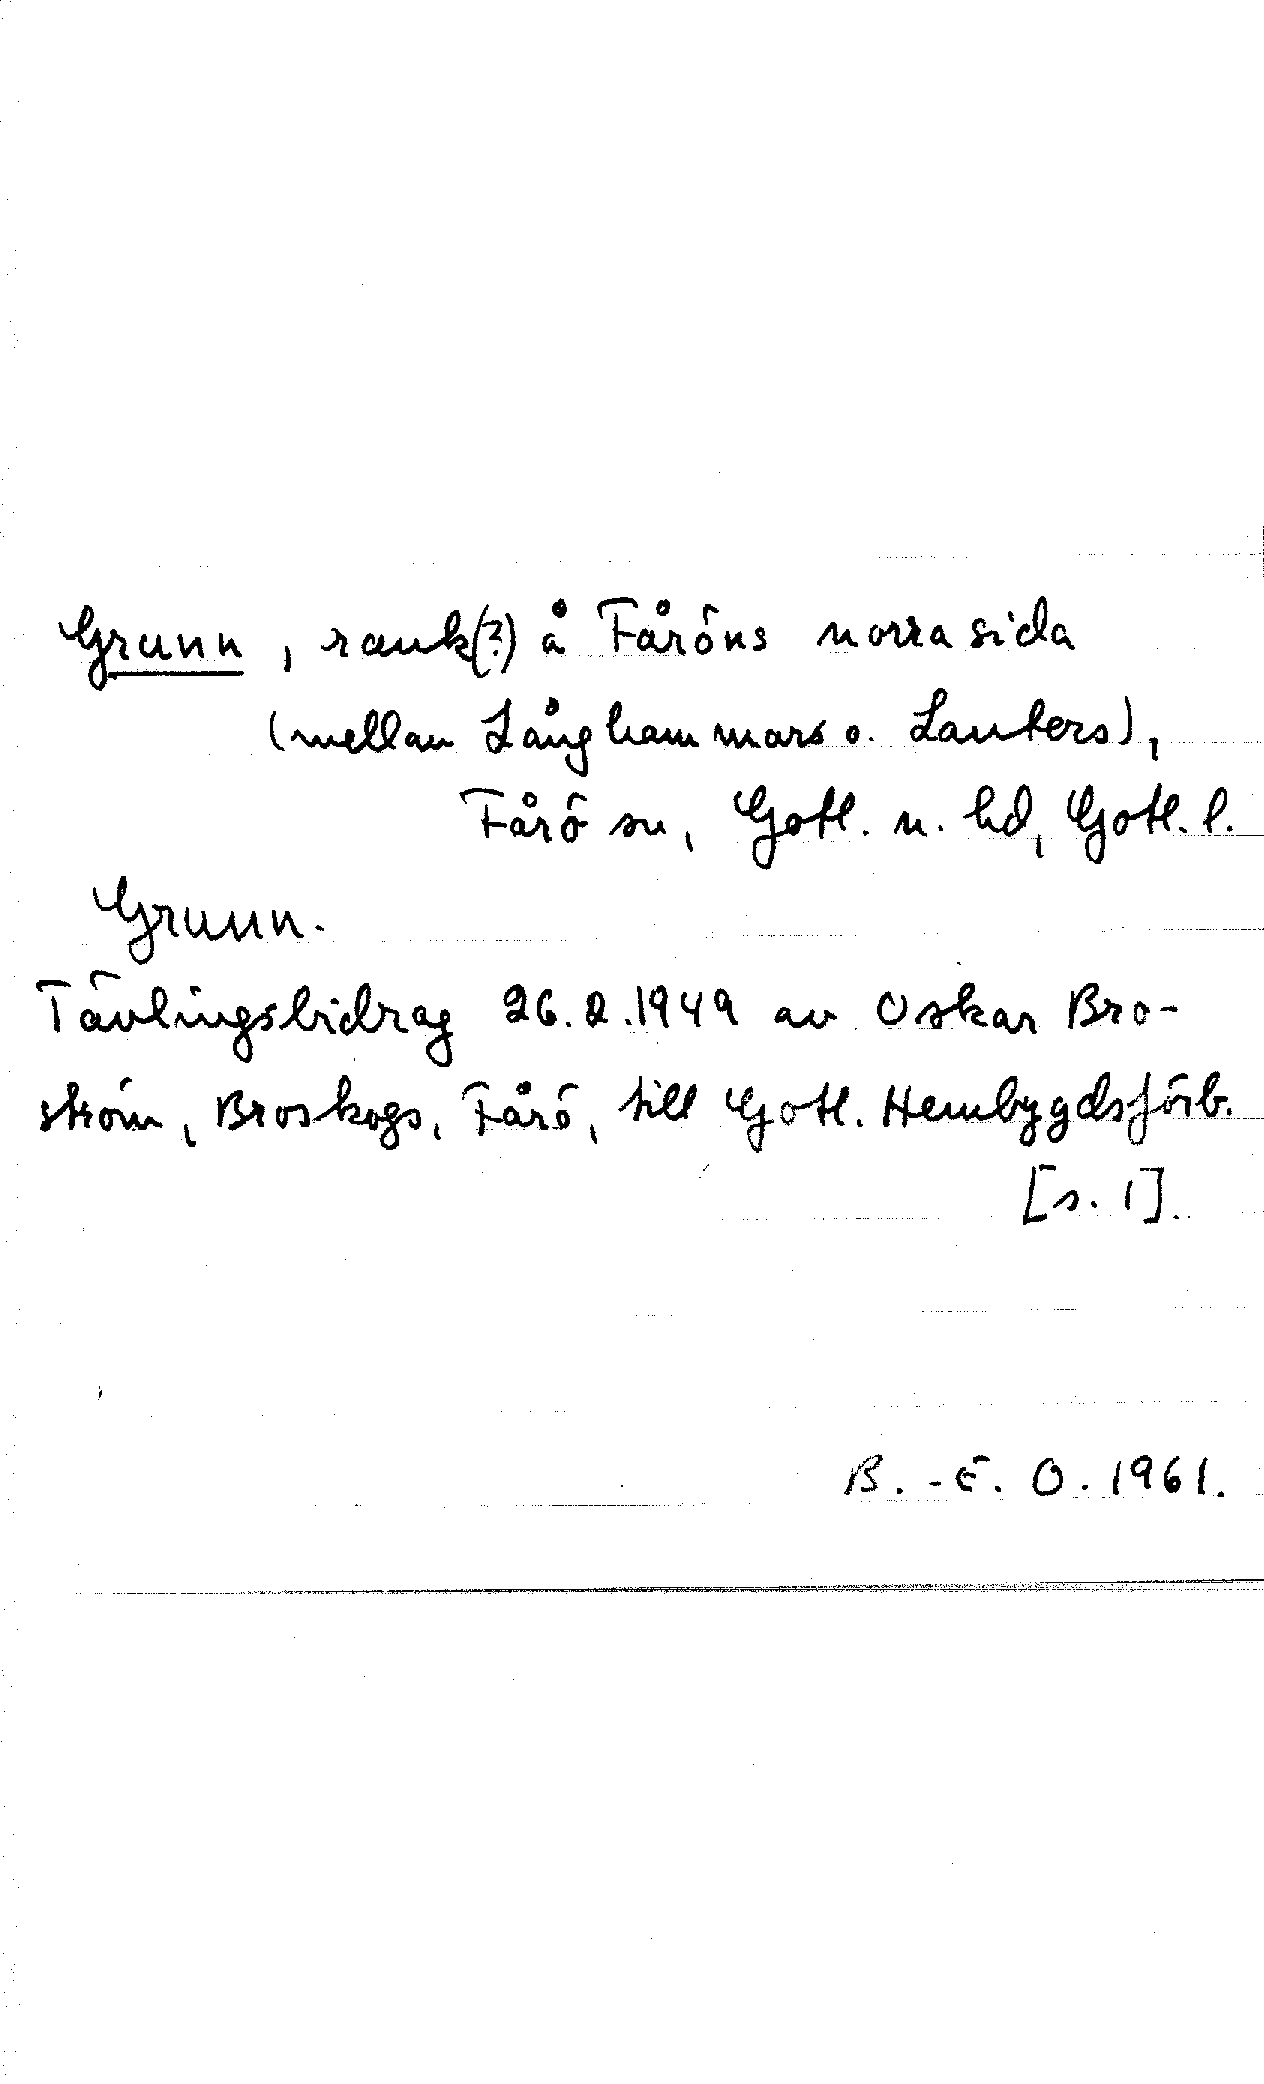 Grunn, rauk(?) å Fåröns norra sida
(mellan Långhammars o. Lauters),
Fårö sn, Gotl. n. hd, Gotl. l.
Grunn.
Tävlingsbidrag 26.2.1949 av Oskar Bro-
ström, Broskogs, Fårö, till Gotl. Hembygdsförb.
[s. 1].
B.-E. O. 1961.